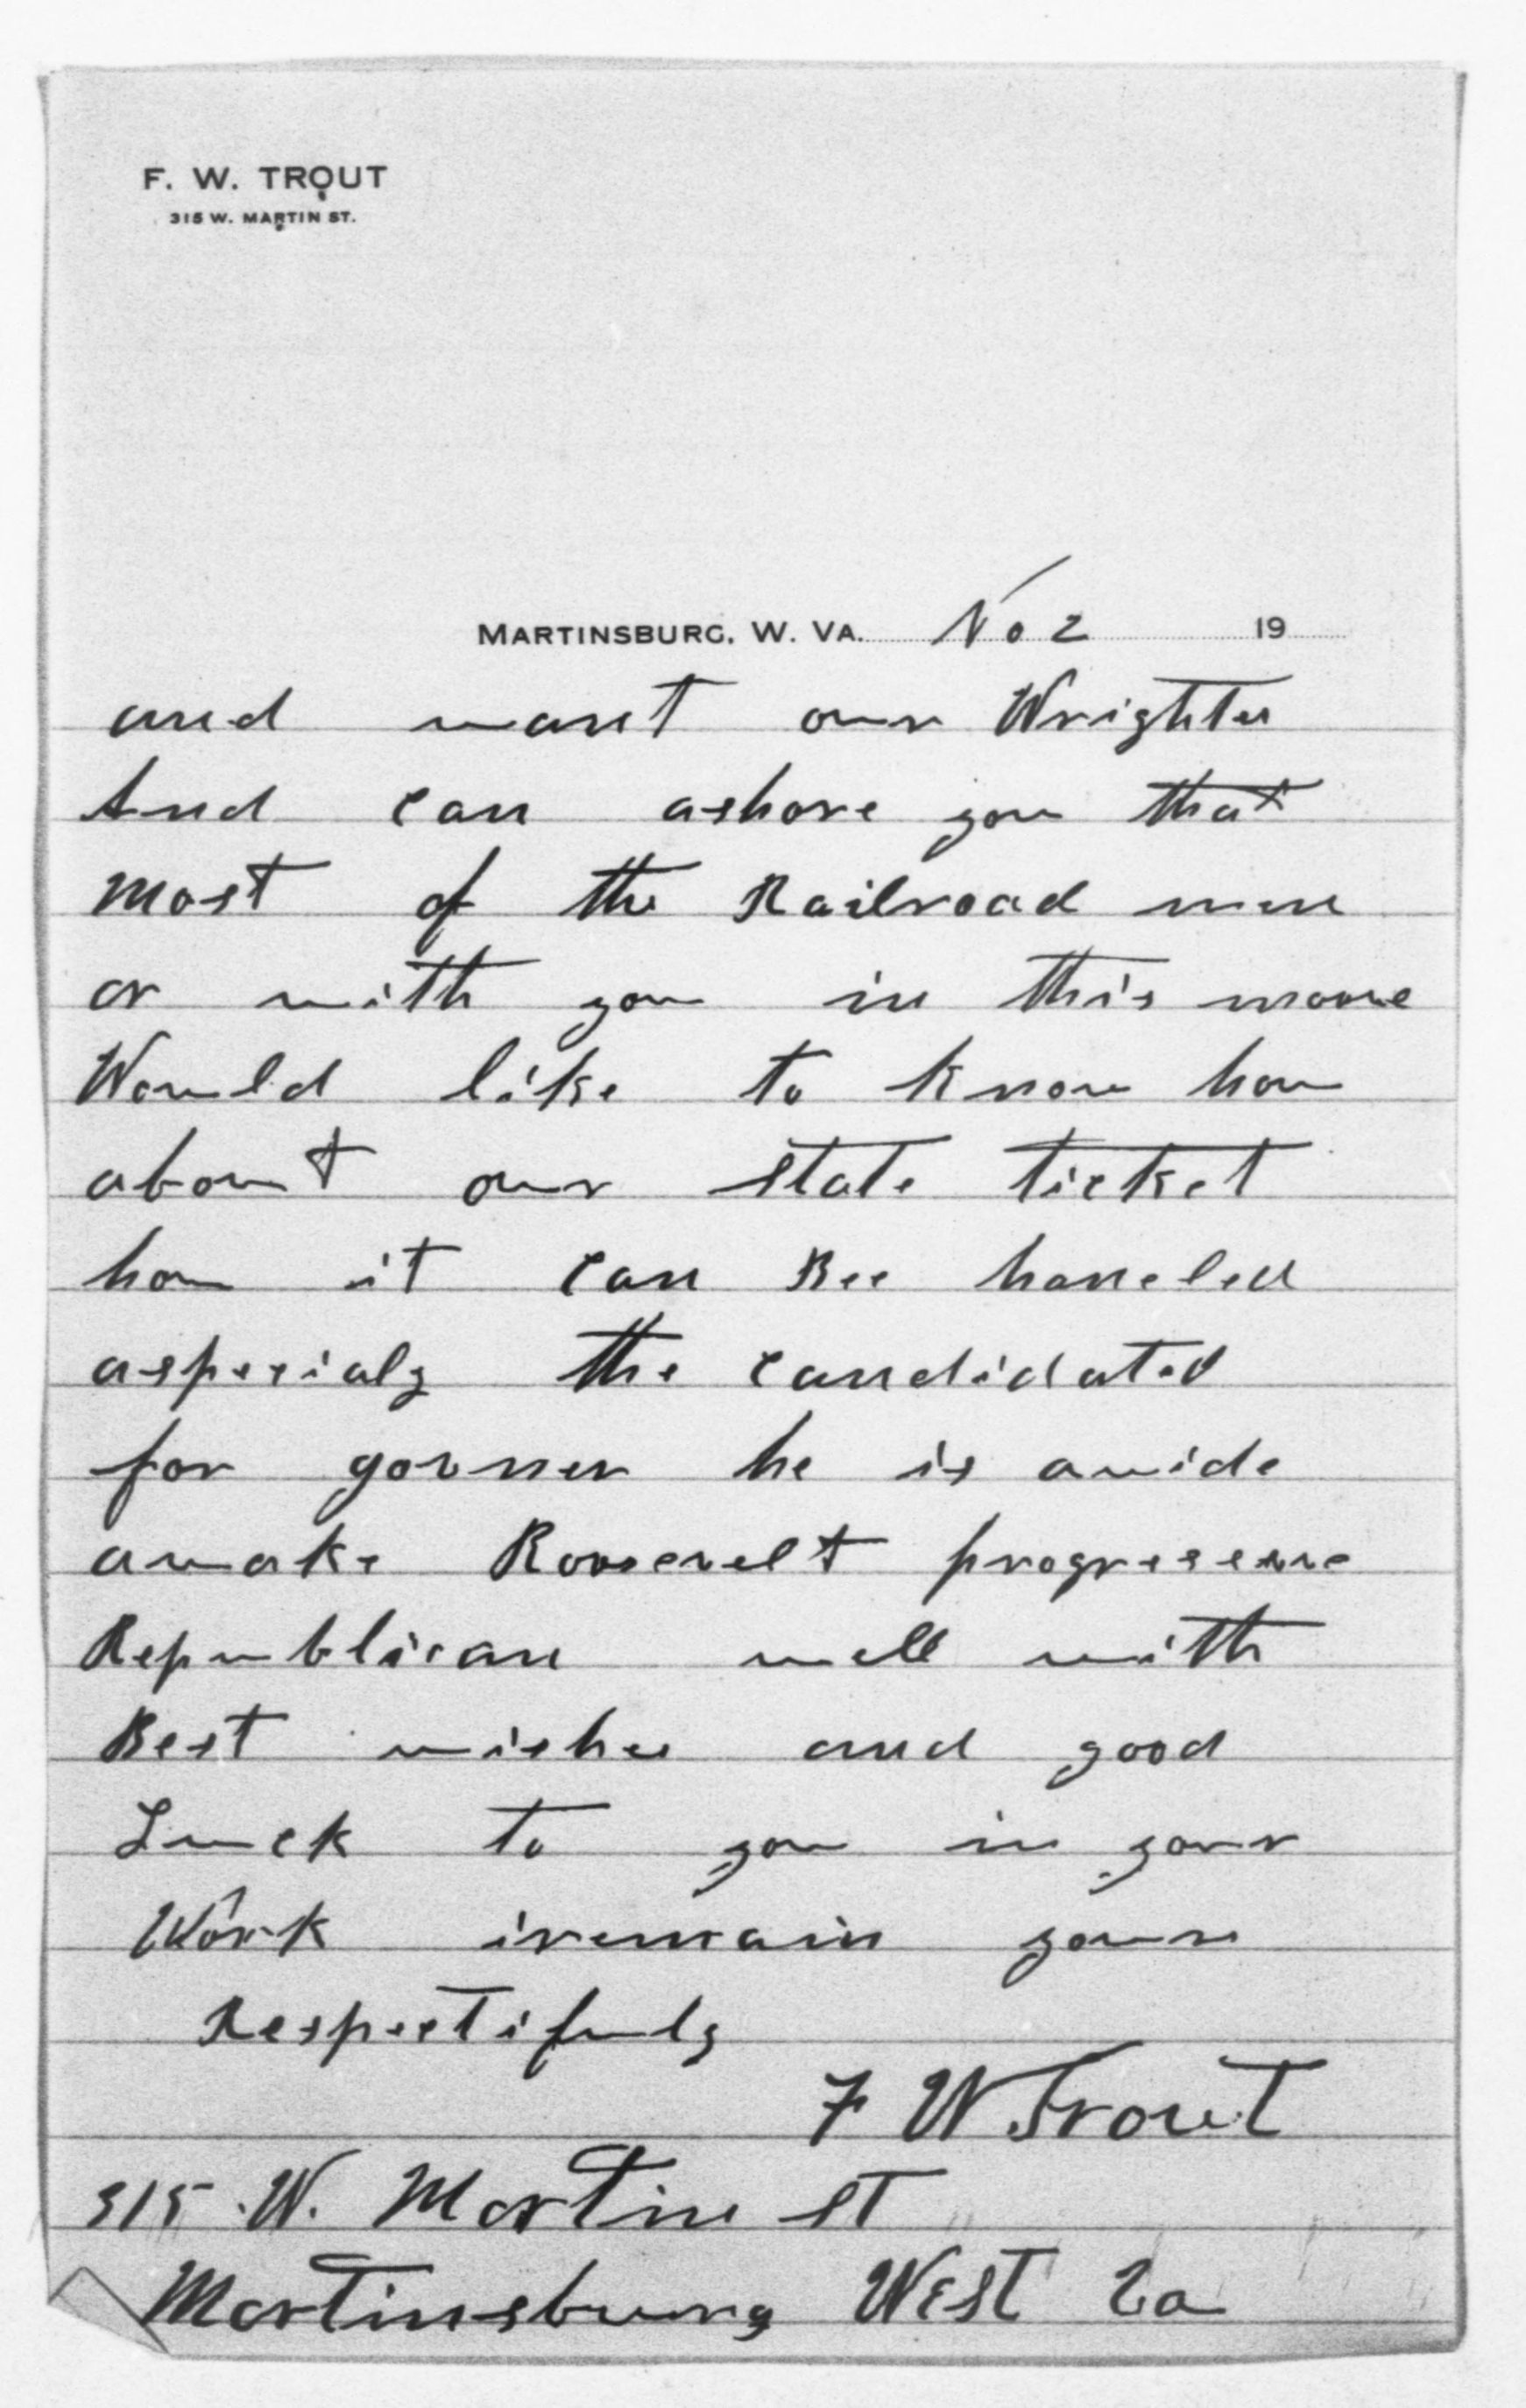 F. W. TROUT
315 W. MARTIN ST.
MARTINSBURG, W. VA. No 2 19
and want our Wrightes
And can ashore you that
most of the Railroad men
or with you in this moove
Would like to know how
about our state ticket
how it can Bee haneled
aspecialy the candidated
for govnner he is a wide
awake Roosevelt progresseve
Republican well with
Best wishes and good
Luck to you in your
Work iremain yours
Respectifuly
F W Trout
315 W. Martin st
Martinsburg West Va